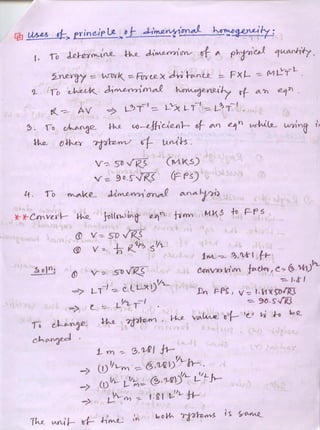 uses of principle of dimensional homogeneity:
1. To determine the dimension of a physical quantity.
Energy = work = Force x distance = F×L = ML²T⁻²
2. To check dimensional homogeneity of an eqn.
Q = AV ⇒ L³T⁻¹ = L²×LT⁻¹ = L³T⁻¹
3. To change the co-efficient of an eqn while using in
the other system of units.
V = 50√RS (MKS)
V = 90.5√RS (FPS)
4. To make dimensional analysis
**Convert the following eqn from MKS to FPS.
① V = 50√RS
② V = 1/n R^2/3 S^1/2
1m = 3.281 ft
Soln; ① V = 50√RS
Conversion factor, C = (3.281)^1/2
= 1.81
⇒ LT⁻¹ = c(L×1)^1/2
In FPS, V = 1.81×50√RS
= 90.5√RS
⇒ c = L^1/2 T⁻¹
To change the system, the value of 'c' is to be
changed.
1 m = 3.281 ft
⇒ (1)^1/2 m = (3.281)^1/2 ft.
⇒ (1)^1/2 L^1/2 m = (3.281)^1/2 L^1/2 ft
⇒ L^1/2 m = 1.81 L^1/2 ft
The unit of time in both systems is same